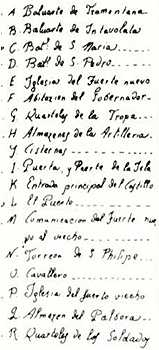 A Baluarte de Tramontana
B. Baluarte de Intavolata
C Bal.te de S. Maria
D. Bal.te de S. Pedro
E Iglesia del Fuerte nuevo
F Abitazion del Gobernador
G Quarteles de la Tropa
H Almazenes de la Artilleria
Y Cisternas
I Puerta, y Puente de la Isla
K Entrada principal del Castillo
L El Puerto
M Comunicacion del Fuerte nue
vo al viecho
N. Torreon de S Phelipe
O. Cavallero
P. Iglesia del fuerto viecho
Q Almazen del Polbora
R Quarteles de los Soldados